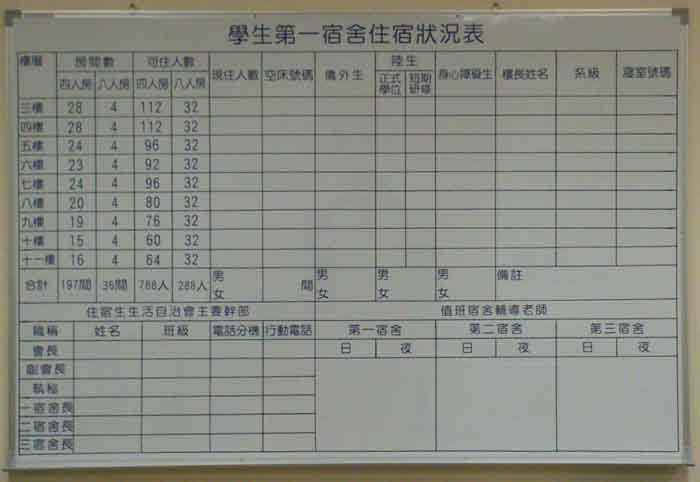 學生第一宿舍住宿狀況表
樓層 房間數 可住人數 現住人數 空床號碼 僑外生 陸生 身心障礙生 樓長姓名 系級 寢室號碼
四人房 八人房 四人房 八人房 正式學位 短期研修
三樓 28 4 112 32
四樓 28 4 112 32
五樓 24 4 96 32
六樓 23 4 92 32
七樓 24 4 96 32
八樓 20 4 80 32
九樓 19 4 76 32
十樓 15 4 60 32
十一樓 16 4 64 32
合計 197間 36間 788人 288人 男 女 間 男 女 男 女 男 女 備註
住宿生生活自治會主要幹部 值班宿舍輔導老師
職稱 姓名 班級 電話分機 行動電話 第一宿舍 第二宿舍 第三宿舍
會長 日 夜 日 夜 日 夜
副會長
執秘
一宿舍長
二宿舍長
三宿舍長